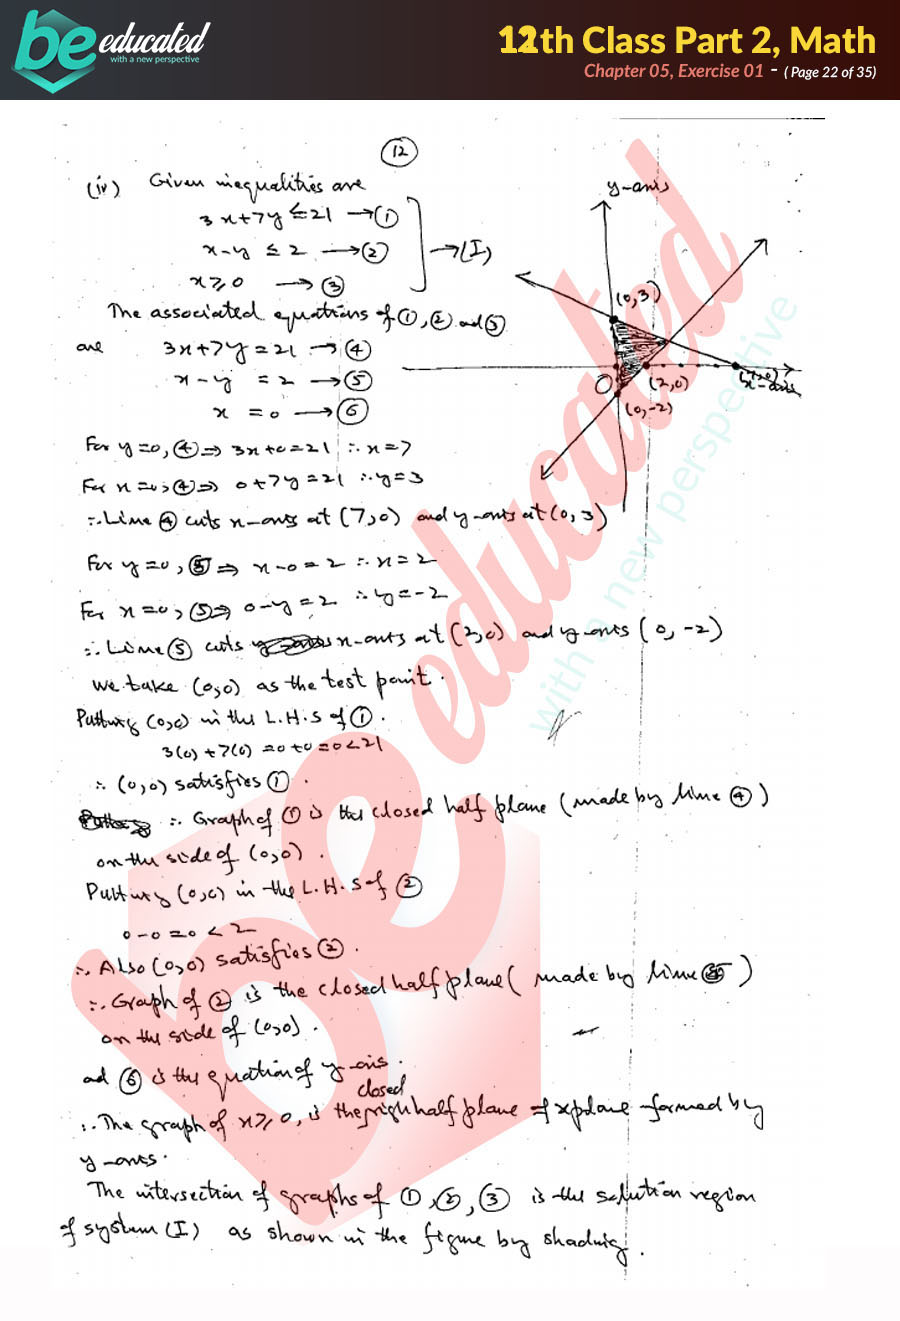 be educated
with a new perspective
12th Class Part 2, Math
Chapter 05, Exercise 01 - ( Page 22 of 35)
12
(iv) Given inequalities are
3x+7y ≤ 21 → ①
x-y ≤ 2 → ②
x ≥ 0 → ③
→ (I)
The associated equations of ①, ② ad ③
are 3x+7y = 21 → ④
x-y = 2 → ⑤
x = 0 → ⑥
y-axis
(0,3)
O
(2,0)
(7,0)
x-axis
(0,-2)
For y=0, ④ ⇒ 3x+0=21 ∴ x=7
For x=0, ④ ⇒ 0+7y=21 ∴ y=3
∴ Line ④ cuts x-axis at (7,0) and y-axis at (0,3)
For y=0, ⑤ ⇒ x-0=2 ∴ x=2
For x=0, ⑤ ⇒ 0-y=2 ∴ y=-2
∴ Line ⑤ cuts x-axis at (2,0) and y-axis (0,-2)
We take (0,0) as the test point.
Putting (0,0) in the L.H.S of ①.
3(0)+7(0) = 0+0=0<21
∴ (0,0) satisfies ①.
∴ Graph of ① is the closed half plane (made by line ④)
on the side of (0,0).
Putting (0,0) in the L.H.S of ②
0-0=0<2
∴ Also (0,0) satisfies ②.
∴ Graph of ② is the closed half plane (made by line ⑤)
on the side of (0,0).
ad ⑥ is the equation of y-axis.
closed
∴ The graph of x≥0, is the righ half plane of xplane formed by
y-axis.
The intersection of graphs of ①, ②, ③ is the solution region
of system (I) as shown in the figure by shading.
be educated
with a new perspective